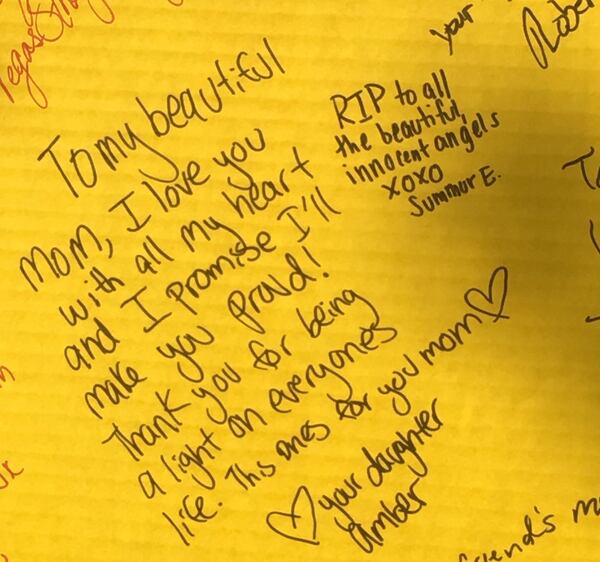 To my beautiful
Mom, I love you
with all my heart
and I promise I'll
make you proud!
Thank you for being
a light on everyones
life. This ones for you mom
your daughter
Amber
RIP to all
the beautiful,
innocent angels
xoxo
Summur E.
your